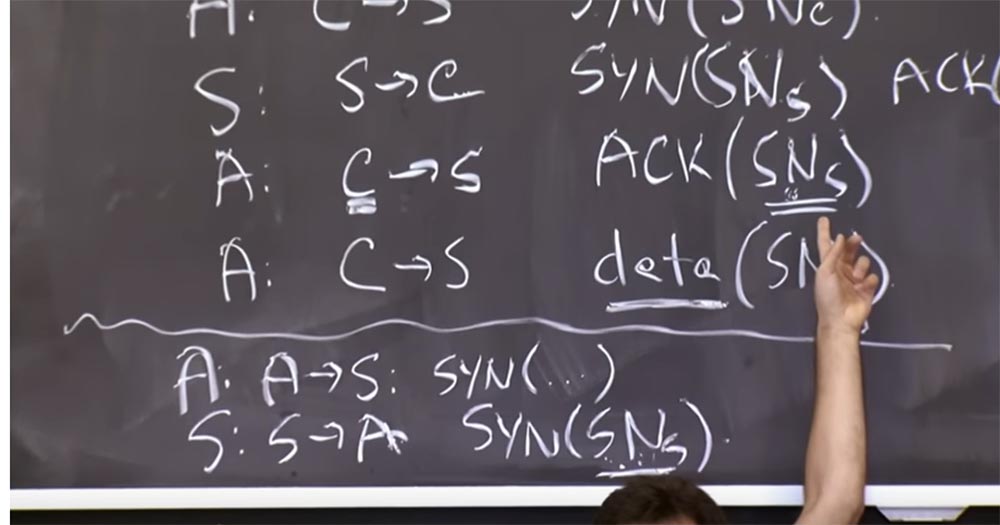 A: C→S SYN(SNc).
S: S→C SYN(SNs) ACK(
A: C→S ACK(SNs)
A: C→S data(SN
A: A→S: SYN(...)
S: S→A SYN(SNs).